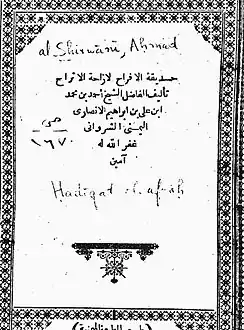 al Shirwānī, Ahmad
حديقة الافراح لازاحة الاتراح
تأليف الفاضل الشيخ أحمد بن محمد
ابن على بن ابراهيم الانصارى
اليمنى الشروانى
غفر الله له
آمين
١٦٧٠
Hadiqat al-afrāh